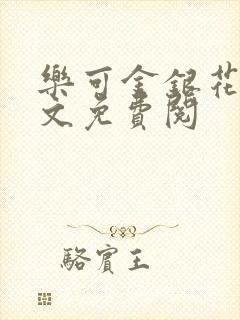 樂可金銀花
文免費閱
駱賓王